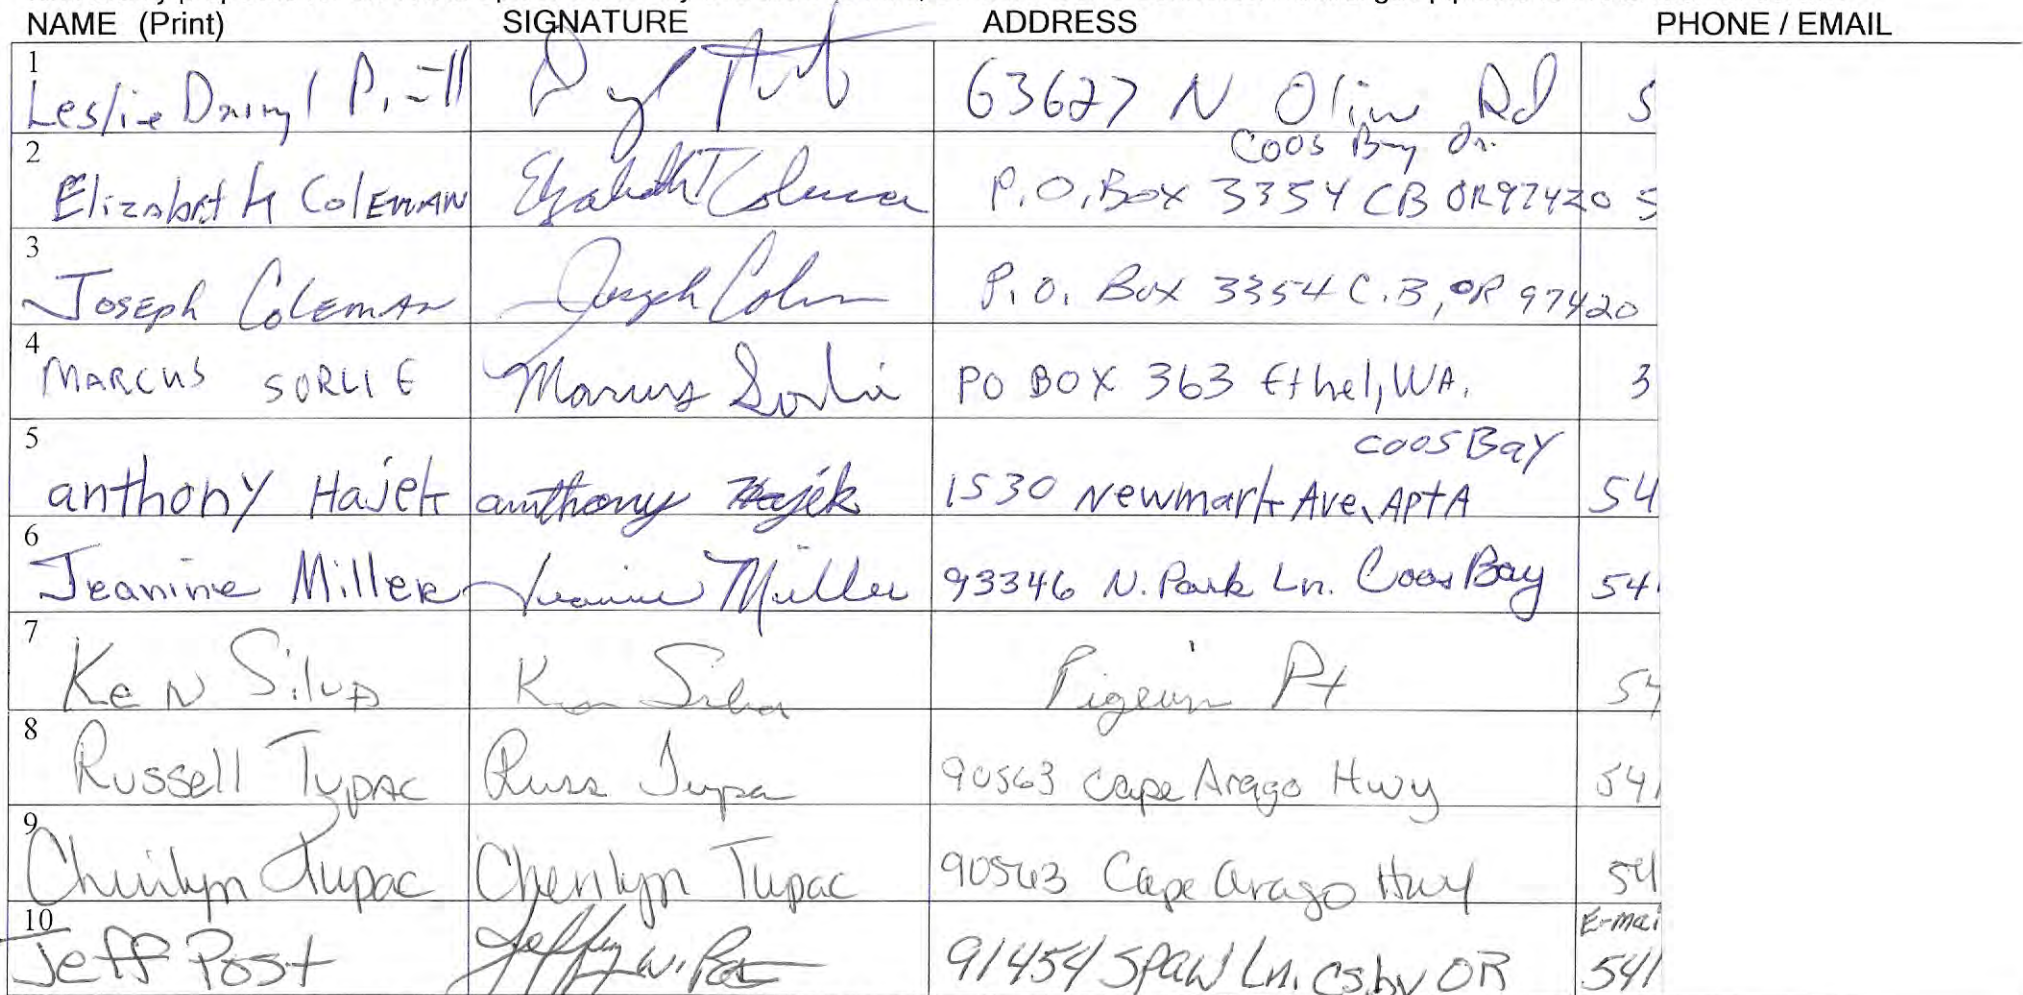 NAME (Print) SIGNATURE ADDRESS PHONE / EMAIL
1
Leslie Darryl 63627 N Olive Rd 5
Coos Bay Or.
2
Elizabeth Coleman Elizabeth Coleman P.O. Box 3354 CB OR 97420 5
3
Joseph Coleman Joseph Coleman P.O. Box 3354 C.B, OR 97420
4
MARCUS SORLIE Marcus Sorlie PO BOX 363 Ethel, WA. 3
5
coos Bay
anthony Hajek anthony Hajek 1530 Newmark Ave, Apt A 54
6
Jeanine Miller Jeanine Miller 93346 N. Park Ln. Coos Bay 54
7
Ken Silva Ken Silva Pigeon Pt 54
8
Russell Tupac Russ Tupac 90563 Cape Arago Hwy 541
9
Cherilyn Tupac Cherilyn Tupac 90563 Cape Arago Hwy 54
10
E-mai
Jeff Post Jeffrey W. Post 91454 Spaw Ln. OR 541